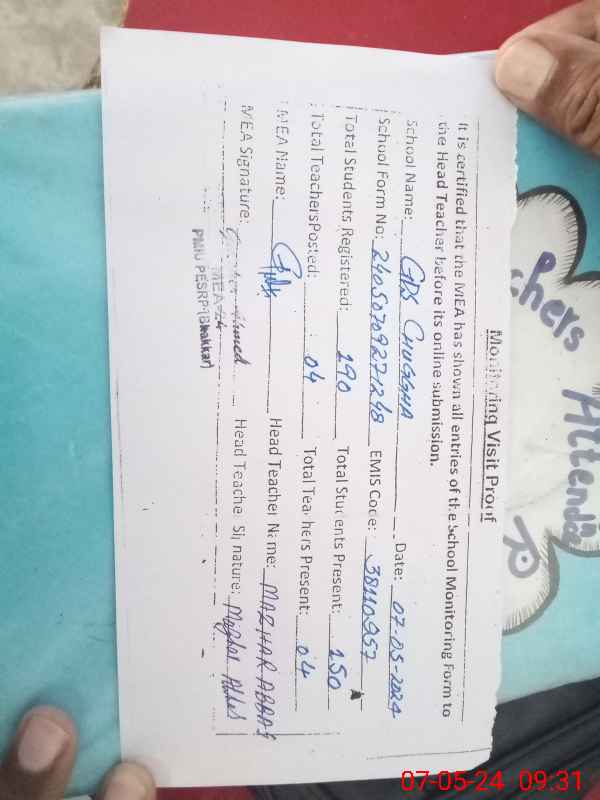 Monitoring Visit Proof
It is certified that the MEA has shown all entries of the School Monitoring Form to
the Head Teacher before its online submission.
School Name: GPS CHUGGHA Date: 07-05-2024
School Form No: EMIS Code: 38110957
Total Students Registered: 190 Total Students Present: 150
Total Teachers Posted: 04 Total Teachers Present: 04
MEA Name: Head Teacher Name: MAZHAR ABBAS
MEA Signature: Ahmed Head Teacher Signature:
MEA-24
PMIU PESRP (Bhakkar)
chers Attenda
07-05-24 09:31